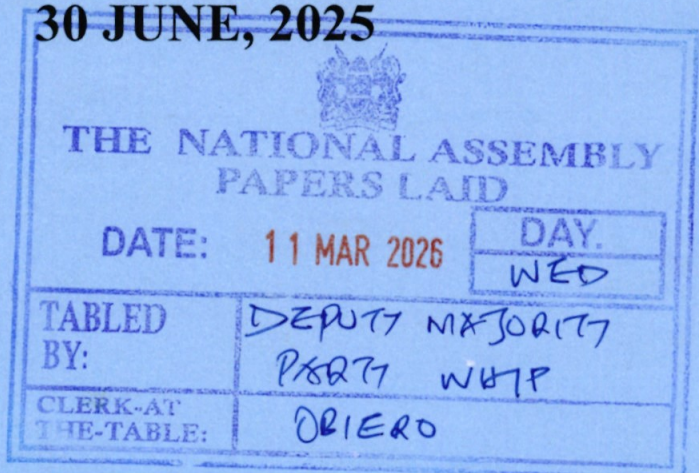 30 JUNE, 2025
THE NATIONAL ASSEMBLY
PAPERS LAID
DATE: 11 MAR 2026
DAY.
WED
TABLED BY:
DEPUTY MAJORITY
PARTY WHIP
CLERK-AT THE-TABLE:
OBIERO